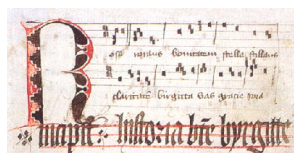 Rosa rorans bonitatem stella stillans
claritatem birgitta vas gracie
Incipit historia bte byrgitte